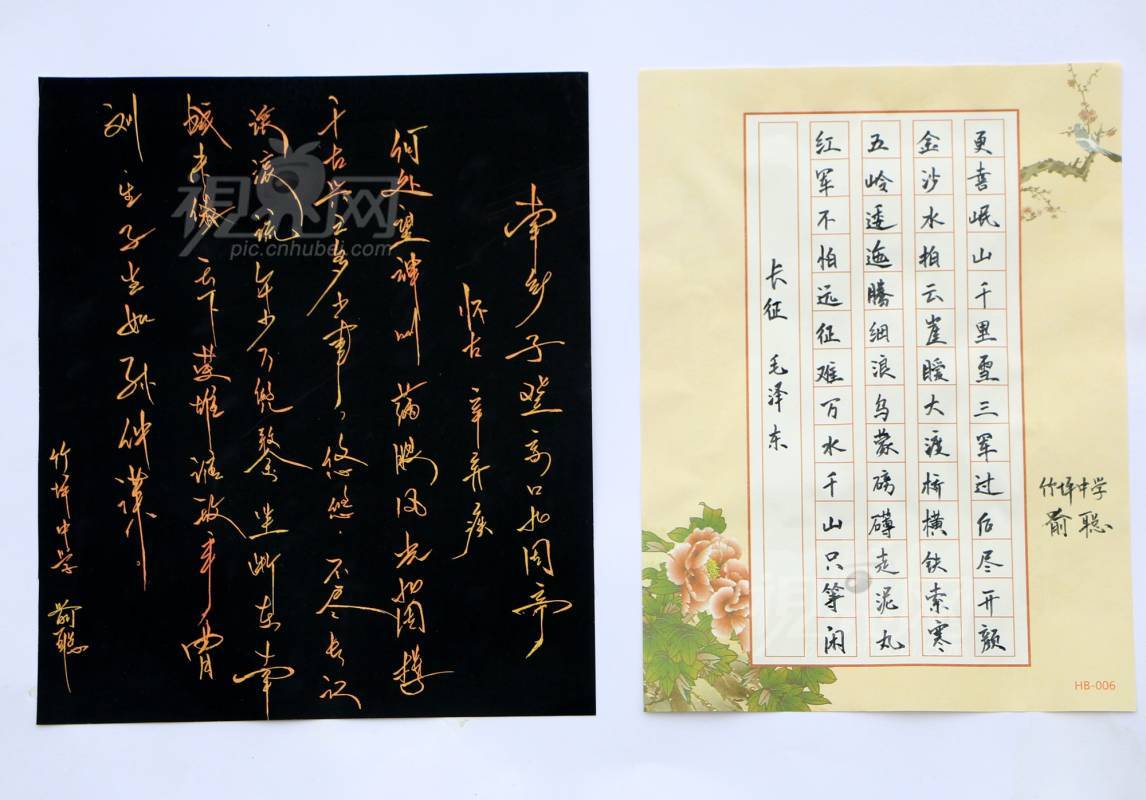 南乡子登京口北固亭
怀古 辛弃疾
何处望神州 满眼风光北固楼
千古兴亡多少事，悠悠，不尽长江
滚滚流 年少万兜鍪 坐断东南
战未休 天下英雄谁敌手 曹
刘 生子当如孙仲谋
竹坪中学 俞聪
长征 毛泽东
红军不怕远征难万水千山只等闲
五岭逶迤腾细浪乌蒙磅礴走泥丸
金沙水拍云崖暖大渡桥横铁索寒
更喜岷山千里雪三军过后尽开颜
竹坪中学
俞聪
HB-006
視界网
pic.cnhubei.com